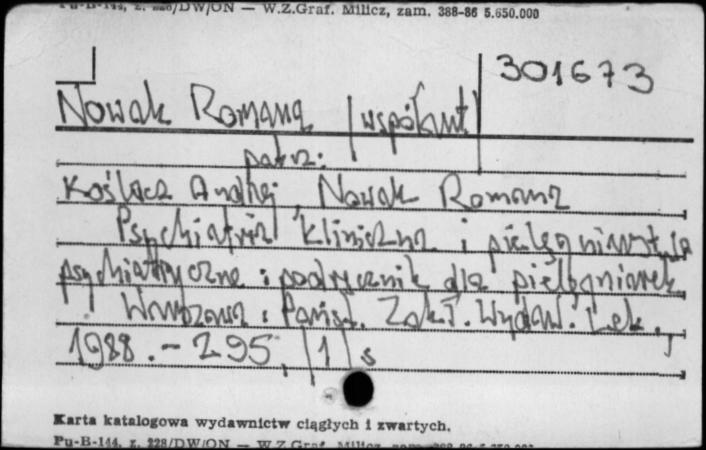 Pu-B-144, z. 228/DW/ON — W.Z.Graf. Milicz, zam. 388-86 5.650.000
301673
Nowak Romana /współaut/
patrz:
Koślacz Andrzej, Nowak Romana
Psychiatria kliniczna i pielęgniarstwo
psychiatryczne : podręcznik dla pielęgniarek
Warszawa : Państ. Zakł. Wydaw. Lek.,
1988. - 295, /1/ s
Karta katalogowa wydawnictw ciągłych i zwartych.
Pu-B-144, z. 228/DW/ON — W.Z.Graf. Milicz, zam. 388-86 5.650.000